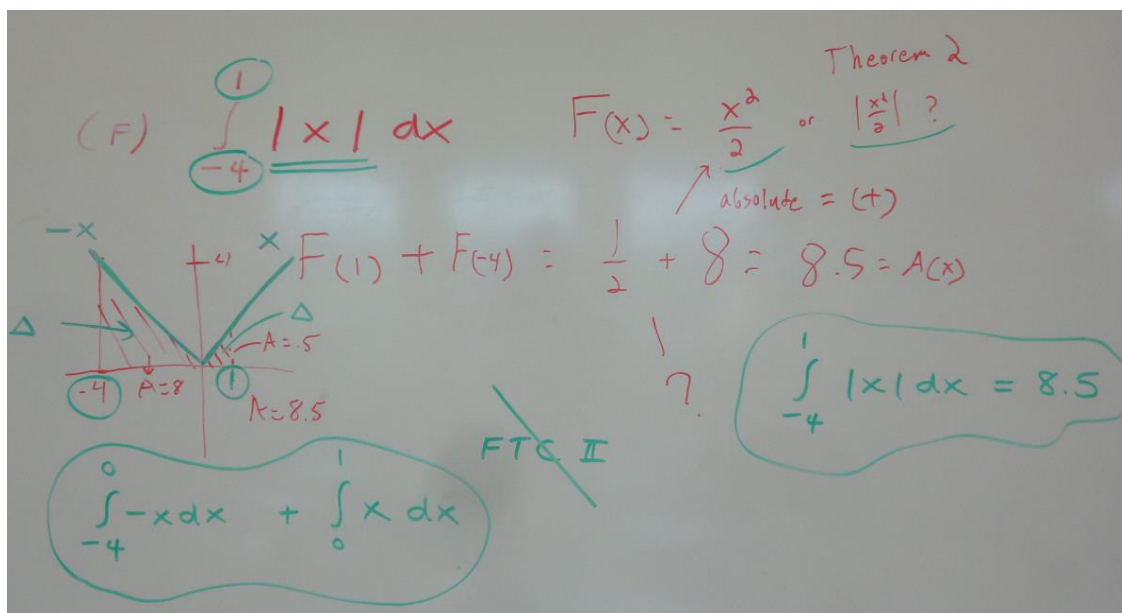 Theorem 2
(F) ∫_{-4}^{1} |x| dx
F(x) = x²/2 or |x²/2| ?
absolute = (+)
F(1) + F(-4) = 1/2 + 8 = 8.5 = A(x)
-x
x
4
Δ
Δ
A=.5
-4
A=8
1
A=8.5
?
∫_{-4}^{1} |x| dx = 8.5
FTC II
∫_{-4}^{0} -x dx + ∫_{0}^{1} x dx